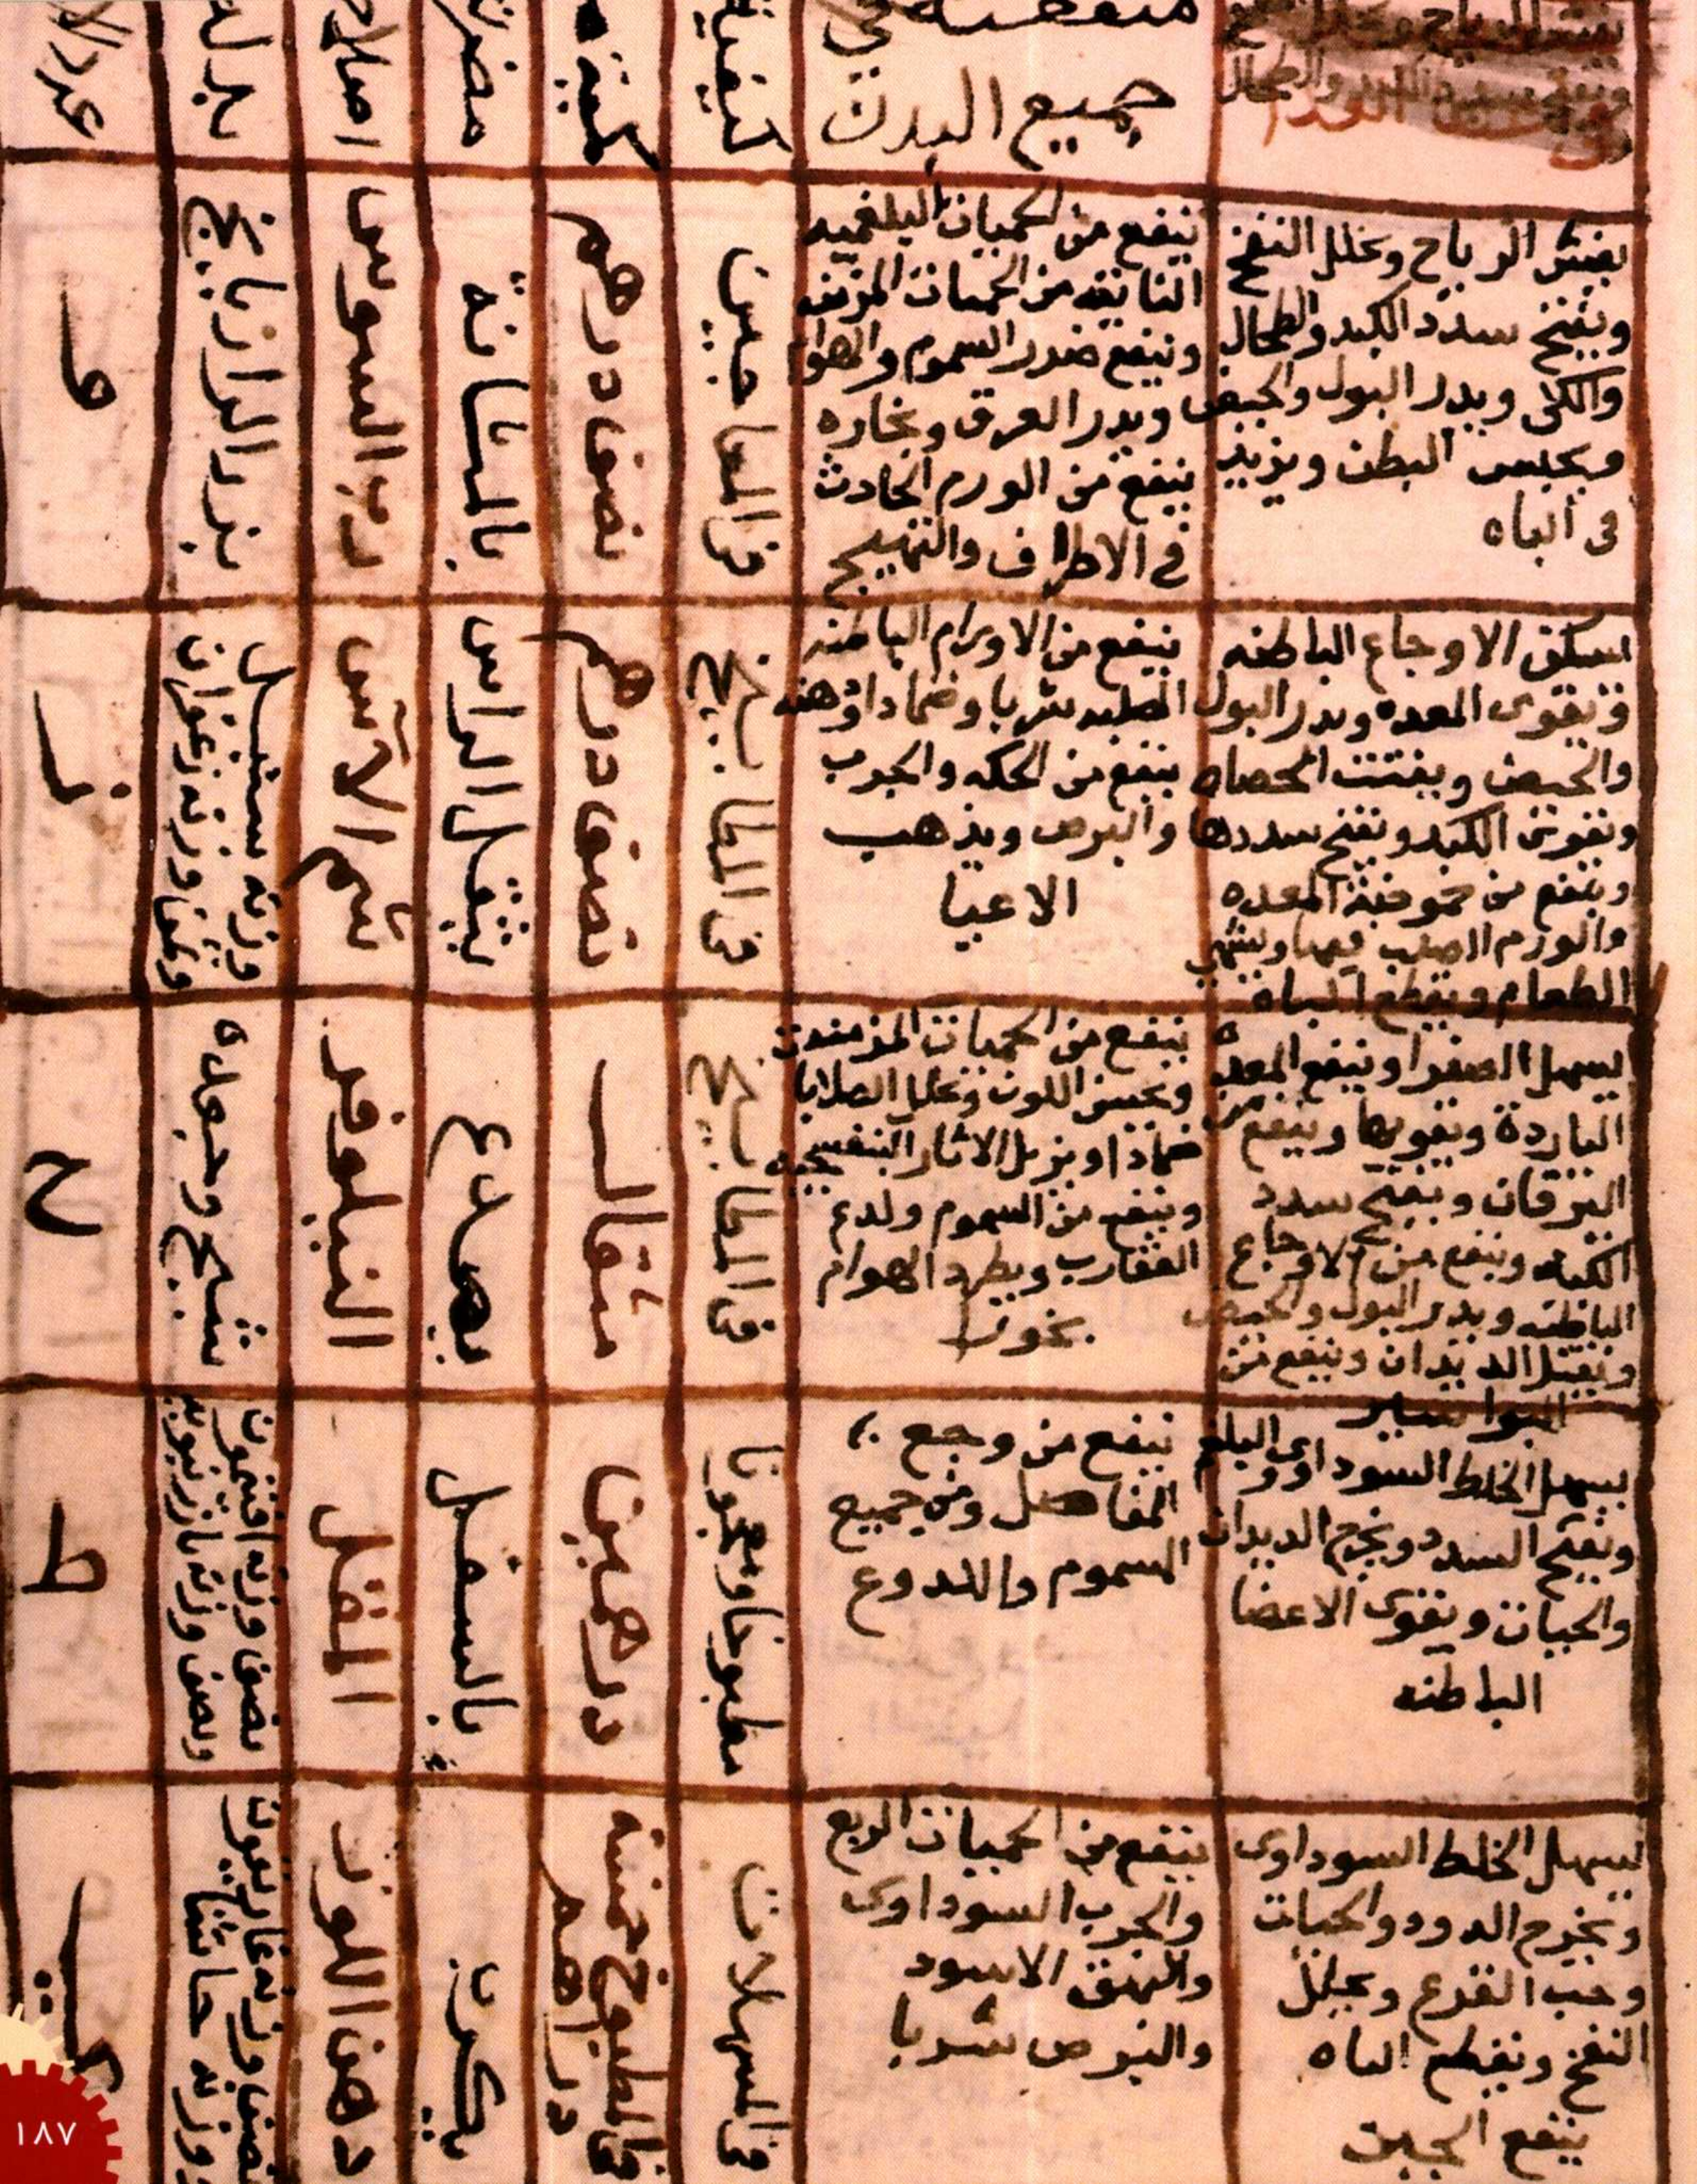 يفتش الرياح ويحلل النفخ
ويفتح سدد الكبد والطحال
منفعته في
جميع البدن
كيفية
كمية
مضرته
بدله
عدد
يفتش الرياح ويحلل النفخ
ويفتح سدد الكبد والطحال
والكلى ويدر البول والحيض
ويحبس البطن ويزيد
في الباه
ينفع من الحميات البلغميه
من الحميات المزمنه
وينفع ضرر السموم والهوام
ويدر العرق وبخاره
ينفع من الورم الحادث
في الاطراف والتهيج
في المعاجين
نصف درهم
بالمثانة
رب السوس
بزر الرازيانج
و
يسكن الاوجاع الباطنه
ويقوى المعده ويدر البول
والحيض ويفتت الحصاه
ويقوى الكبد ويفتح سددها
وينفع من حموضة المعده
والورم الصلب فيها ويشهي
الطعام ويقطع الباه
ينفع من الاورام الباطنه
الصلبه شربا وضمادا ودهنه
ينفع من الحكه والجرب
والبرص ويذهب
الاعيا
في المطابيخ
نصف درهم
يثقل الراس
شم الآس
وزنه سنبل
وزنه زعفران
ز
يسهل الصفرا وينفع المعدة
الباردة ويقويها وينفع من
اليرقان ويفتح سدد
الكبد وينفع من الاوجاع
الباطنه ويدر البول والحيض
ويقتل الديدان وينفع من
البواسير
ينفع من الحميات المزمنة
ويحسن اللون ويحلل الصلابا
ضمادا ويزيل الاثار البنفسجيه
وينفع من السموم ولدغ
العقارب ويطرد الهوام
بخورا
في المطابيخ
مثقال
يصدع
النيلوفر
شيح وجعده
ح
يسهل الخلط السوداوى والبلغم
ويفتح السدد ويخرج الديدان
والحيات ويقوى الاعضا
الباطنه
ينفع من وجع
المفاصل ومن جميع
السموم واللدوغ
مطبوخا ومعجونا
درهمين
بالسفل
المقل
نصف وزنه افتيمون
ونصف وزنه
ط
يسهل الخلط السوداوى
ويخرج الدود والحيات
وحب القرع ويحلل
النفخ ويقطع الباه
ينفع الجبين
ينفع من الحميات الربع
والجرب السوداوى
والبهق الاسود
والبرص شربا
في المسهلات
في المطبوخ خمسة
دراهم
يكرب
دهن اللوز
نصف وزنه غاريقون
ووزنه حاشا
١٨٧